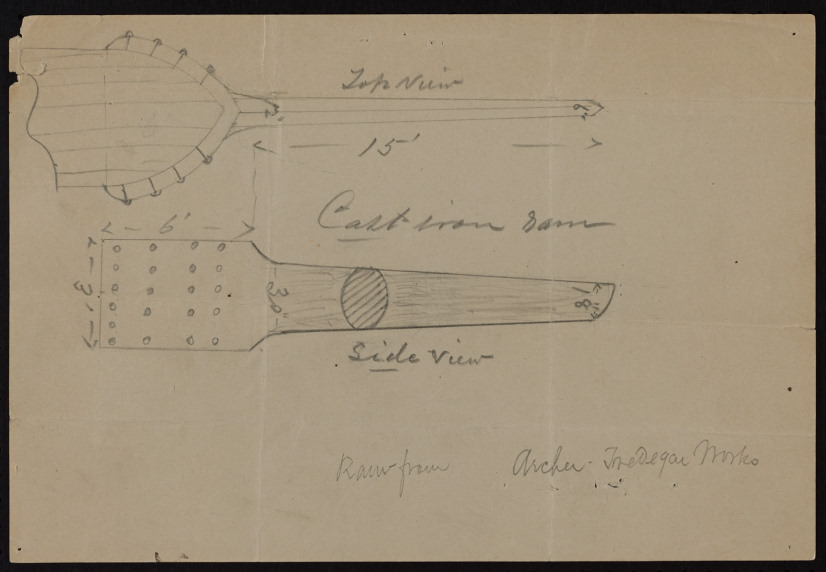 Top View
2"
6"
15'
Cast iron Ram
6'
3'
30"
18"
Side View
Ram from Archer - Tredegar Works